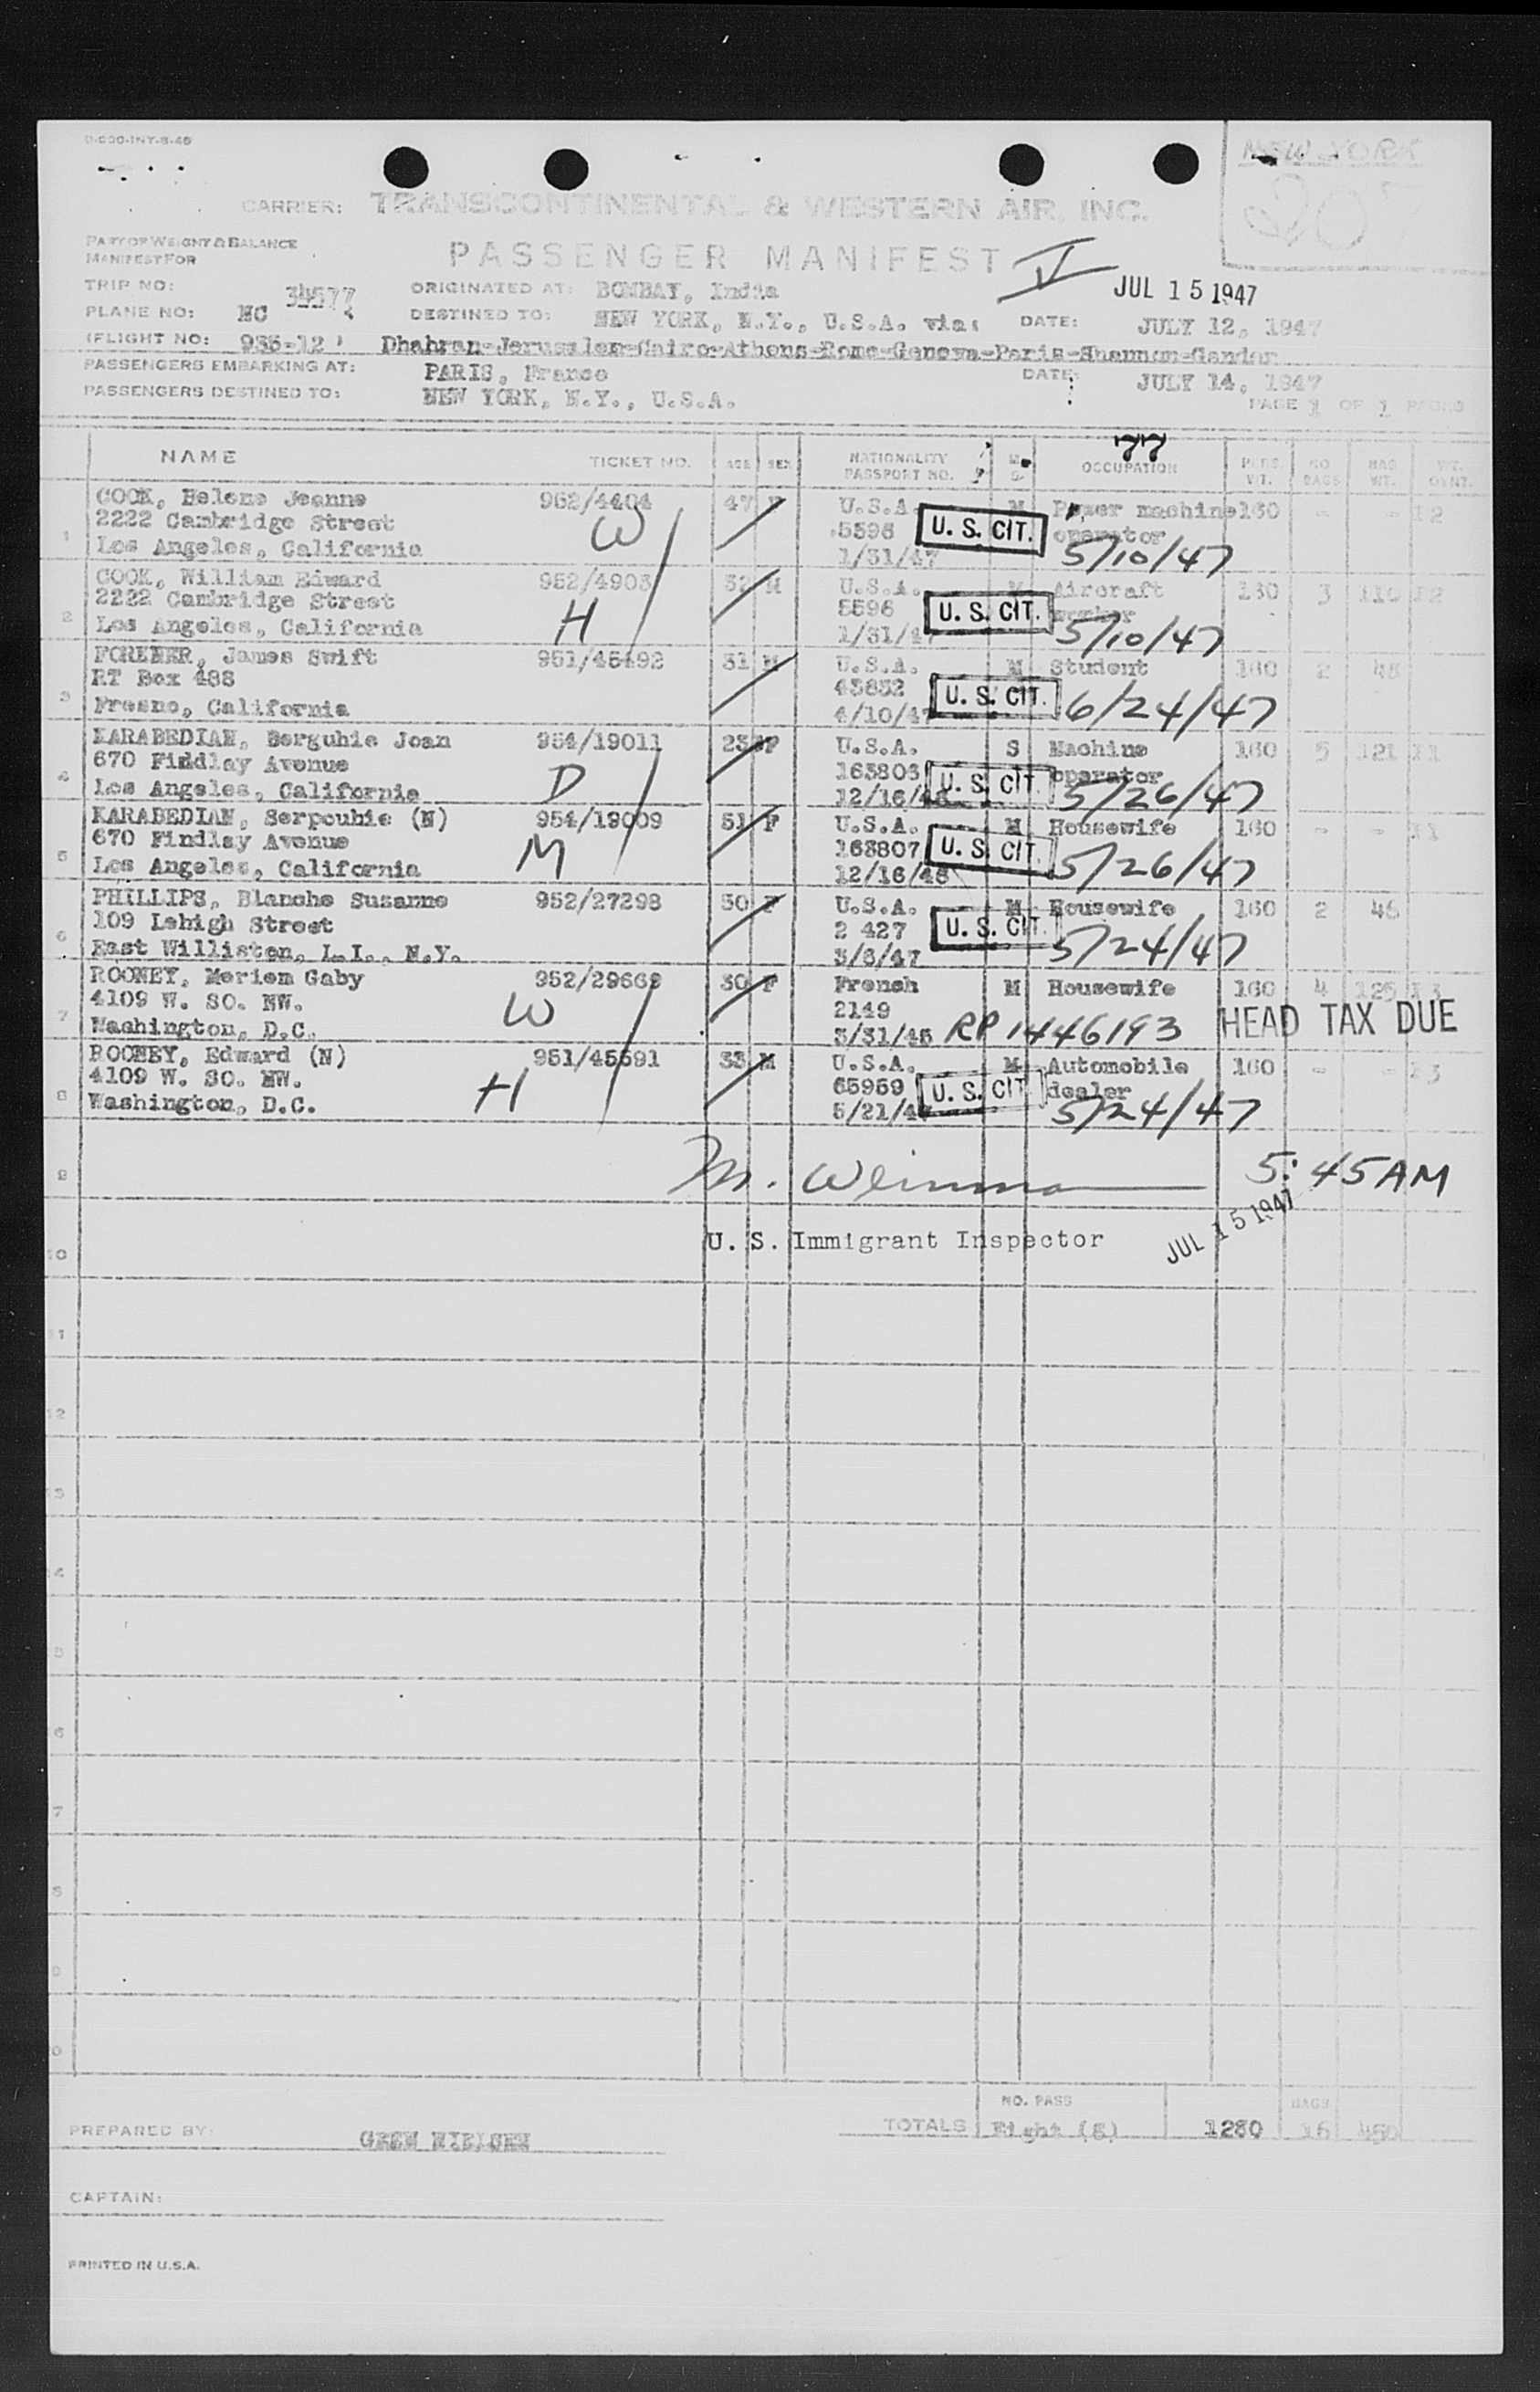 NEW YORK
CARRIER: TRANSCONTINENTAL & WESTERN AIR, INC.
PART OF WEIGHT & BALANCE
MANIFEST FOR
PASSENGER MANIFEST
JUL 15 1947
TRIP NO:
ORIGINATED AT: BOMBAY, India
PLANE NO: NC
DESTINED TO: NEW YORK, N.Y., U.S.A. via: DATE: JULY 12, 1947
(FLIGHT NO: 935-12 Dhahran-Jerusalem-Cairo-Athens-Rome-Geneva-Paris-Shannon-Gander
PASSENGERS EMBARKING AT: PARIS, France DATE: JULY 14, 1947
PASSENGERS DESTINED TO: NEW YORK, N.Y., U.S.A.
PAGE 1 OF 1 PAGES
NAME TICKET NO. AGE SEX NATIONALITY PASSPORT NO. M S OCCUPATION PERS. WT. NO. BAGS BAG WT.
COOK, Helene Jeanne 962/4404 47 F U.S.A. M Power machine 160 - - 12
2222 Cambridge Street W 5596 U. S. CIT. operator
1 Los Angeles, California 1/31/47 5/10/47
COOK, William Edward 952/4903 52 M U.S.A. M Aircraft 160 3 110 12
2222 Cambridge Street 5596 U. S. CIT. worker
2 Los Angeles, California H 1/31/47 5/10/47
FOREMER, James Swift 951/45492 31 M U.S.A. M Student 160 2 48
RT Box 488 43852 U. S. CIT.
3 Fresno, California 4/10/47 6/24/47
KARABEDIAN, Berguhie Joan 954/19011 23 F U.S.A. S Machine 160 5 121 11
670 Findlay Avenue D 163806 U. S. CIT. operator
4 Los Angeles, California 12/16/46 5/26/47
KARABEDIAN, Serpouhie (N) 954/19009 51 F U.S.A. M Housewife 160 - - 11
670 Findlay Avenue M 163807 U. S. CIT.
5 Los Angeles, California 12/16/46 5/26/47
PHILLIPS, Blanche Suzanne 952/27298 30 F U.S.A. M Housewife 160 2 46
109 Lehigh Street 2 427 U. S. CIT.
6 East Williston, L.I., N.Y. 3/3/47 5/24/47
ROONEY, Meriem Gaby 952/29669 30 F French M Housewife 160 4 125 13
4109 W. SO. NW. W 2149
7 Washington, D.C. 3/31/45 RP 1446193 HEAD TAX DUE
ROONEY, Edward (N) 951/45591 33 M U.S.A. M Automobile 160 - - 13
4109 W. SO. NW. H 65959 U. S. CIT. dealer
8 Washington, D.C. 5/21/47 5/24/47
9 5:45 AM
10 U. S. Immigrant Inspector JUL 15 1947
NO. PASS BAGS
PREPARED BY: TOTALS Eight (8) 1280 16 450
CAPTAIN:
PRINTED IN U.S.A.